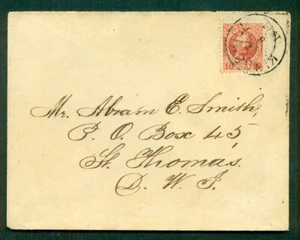 Mr. Abram E. Smith,
P. O. Box 45
St. Thomas,
D. W. I.